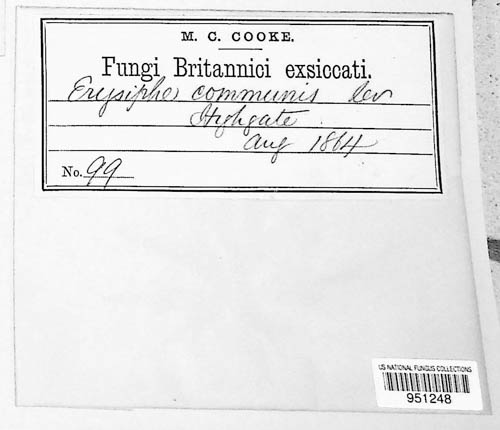 M. C. COOKE.
Fungi Britannici exsiccati.
Erysiphe communis Lev
Highgate
Aug 1864
No. 99
US NATIONAL FUNGUS COLLECTIONS
951248